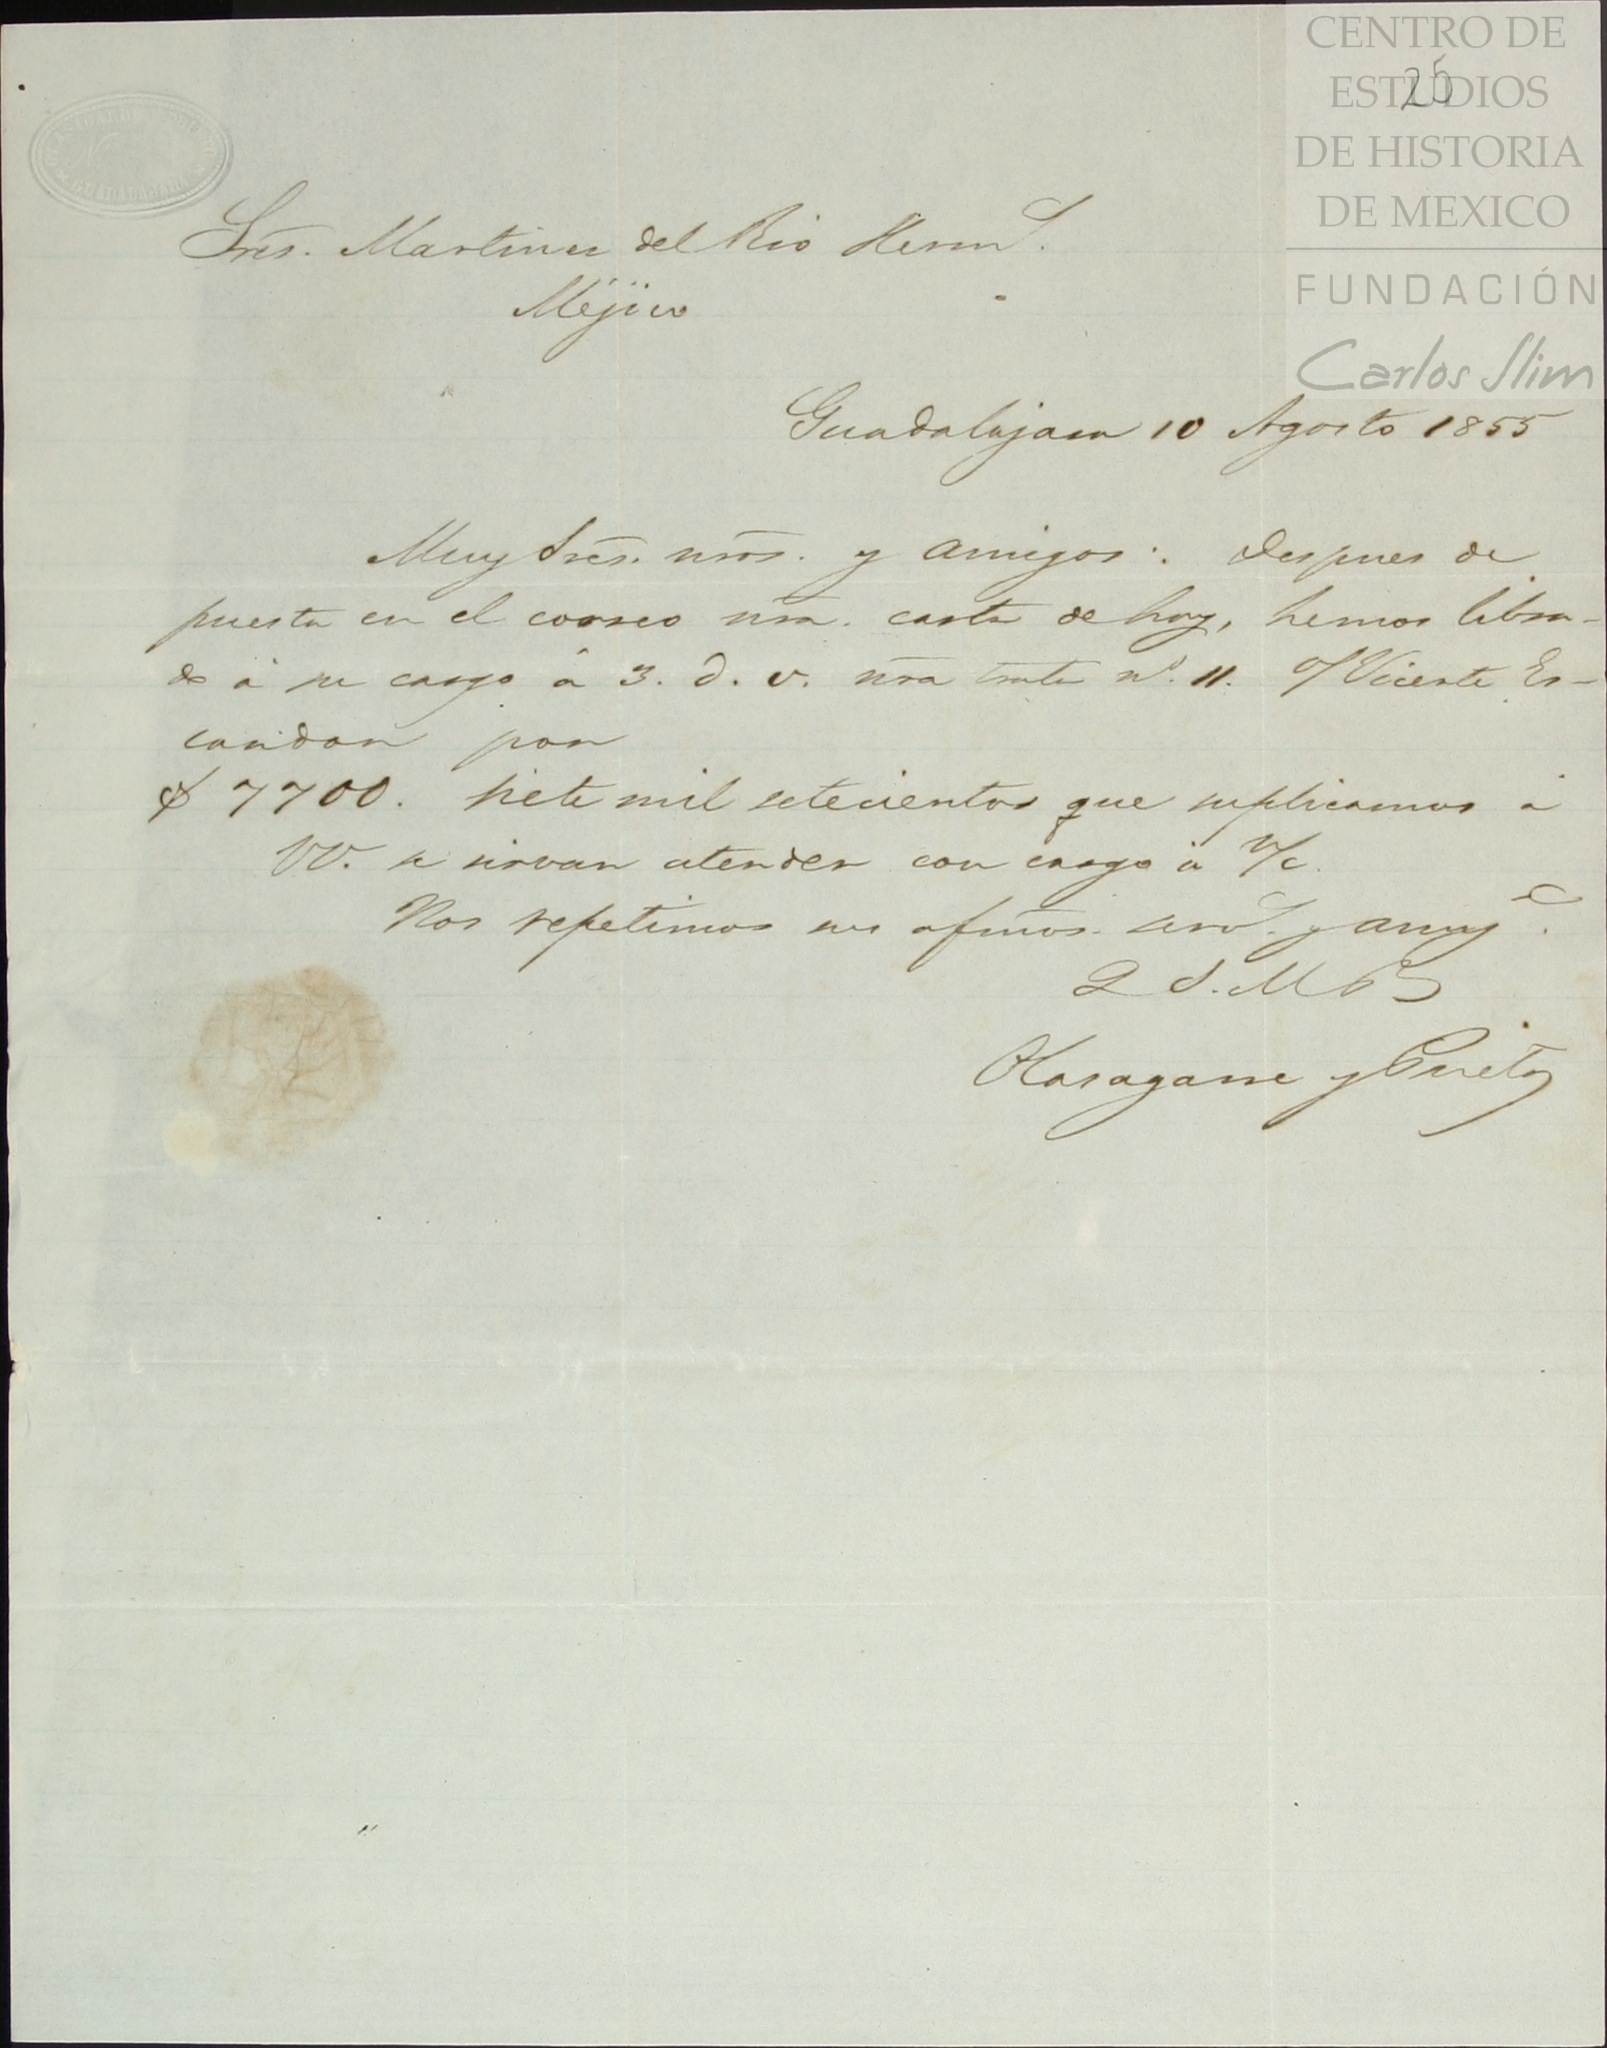 CENTRO DE
ESTUDIOS
DE HISTORIA
DE MEXICO
FUNDACIÓN
Carlos Slim
25
GUADALAJARA
Sres. Martinez del Rio Herms.
Méjico
Guadalajara 10 Agosto 1855
Muy Sres. nros. y amigos: Despues de
puesta en el correo nra. carta de hoy, hemos libra-
do á su cargo á 3. d. v. nra trata nº. 11. o/ Vicente Es-
candon por
$ 7700. siete mil setecientos que suplicamos á
VV. se sirvan atender con cargo á n/c.
Nos repetimos sus afmos. servs. y amigs.
Q S. M B
Olasagarre y Prieto